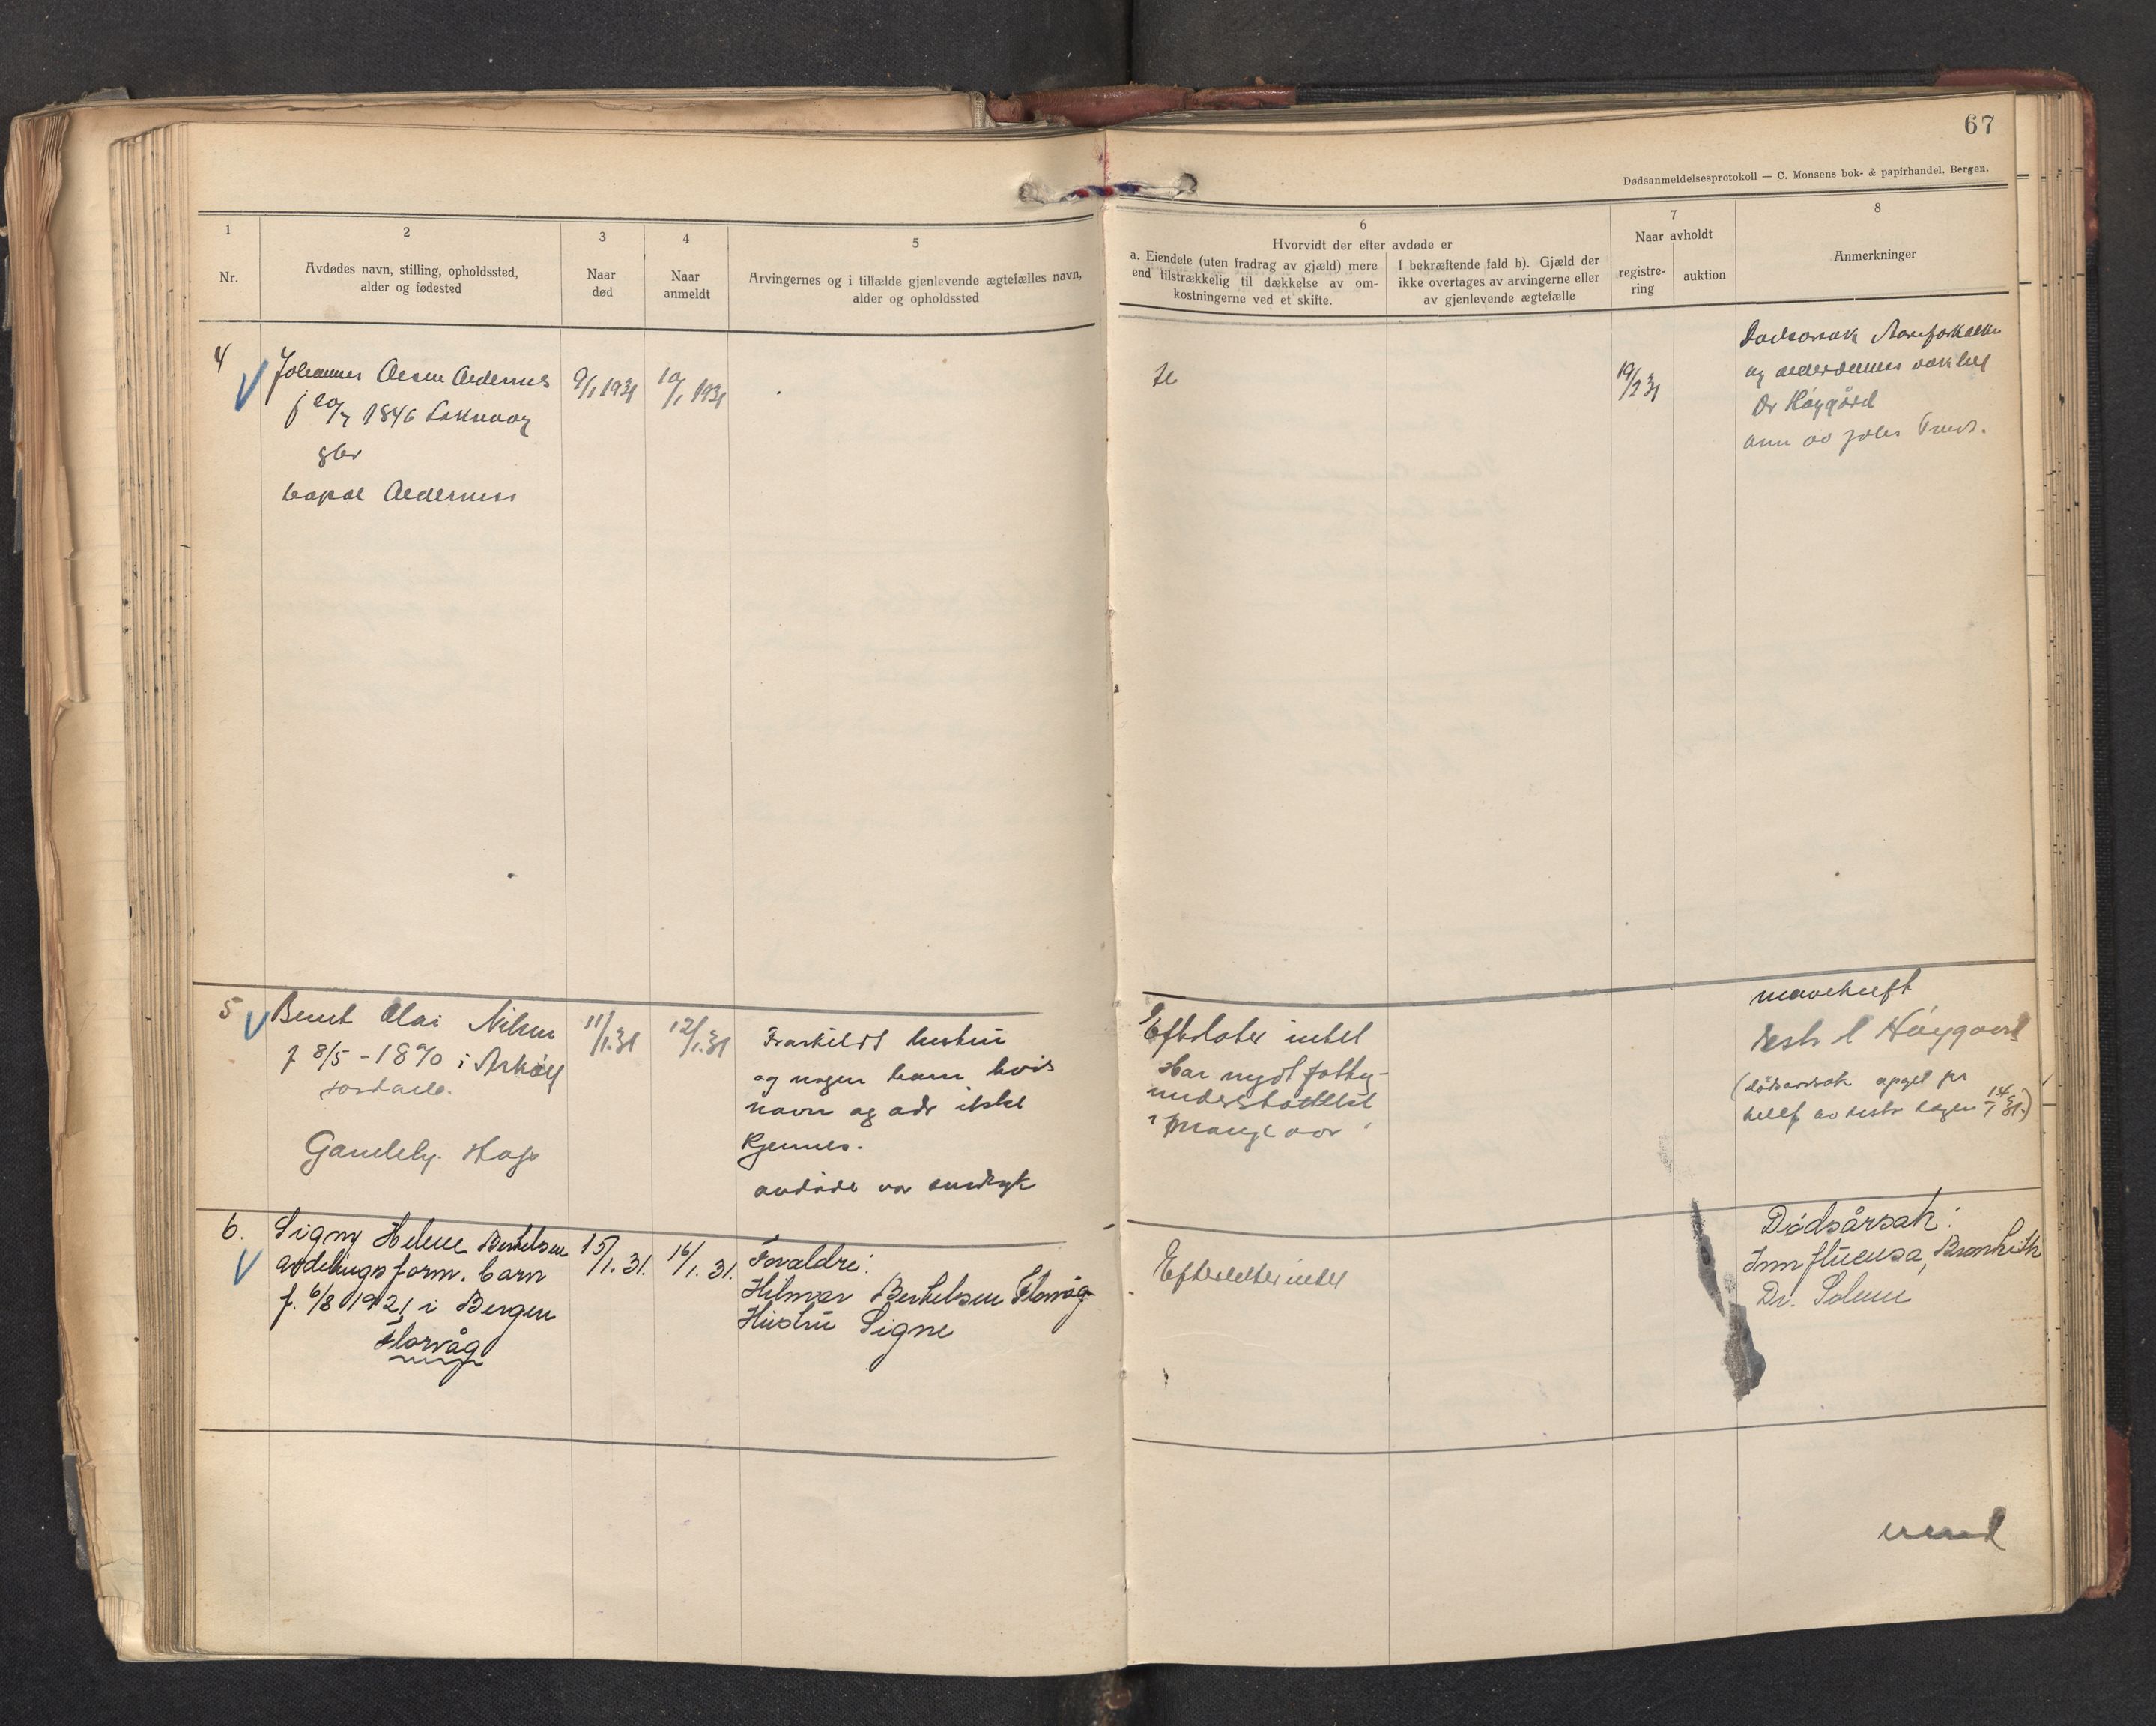 67
Dødsanmeldelsesprotokoll — C. Monsens bok- & papirhandel, Bergen.
1
Nr.
2
Avdødes navn, stilling, opholdssted,
alder og fødested
3
Naar
død
4
Naar
anmeldt
5
Arvingernes og i tilfælde gjenlevende ægtefælles navn,
alder og opholdssted
6
Hvorvidt der efter avdøde er
a. Eiendele (uten fradrag av gjæld) mere
end tilstrækkelig til dækkelse av om-
kostningerne ved et skifte.
I bekræftende fald b). Gjæld der
ikke overtages av arvingerne eller
av gjenlevende ægtefælle
7
Naar avholdt
registre-
ring
auktion
8
Anmerkninger
4
Johannes Olsen
f 20/7 1846
gbr
9/1 1931
10/1 1931
19/2 31
Dødsorsak
og
Dr Høygård
5
Bernt Olai Nilsen
f 8/5 - 1870 i Askøy
Gamleby. Hop
11/1.31
12/1.31
Fraskildt hustru
og nogen barn, hvis
navn og adr ikke
kjennes.
avdøde var
Efterlater intet
Har nydt fattig-
understøttelse
i mange aar
mavekreft
Høygaard
(dødsorsak opget pr
telef av 14/1 31.)
6.
Signy Helene Berthelsen
avdelingsform. barn
f. 6/8 1921 i Bergen
Florvåg
15/1.31.
16/1.31.
Foraldre:
Hilmar Berthelsen Florvåg
Hustru Signe
Efterlater intet
Dødsårsak:
Innfluensa, Bronkitt
Dr. Solem
vend